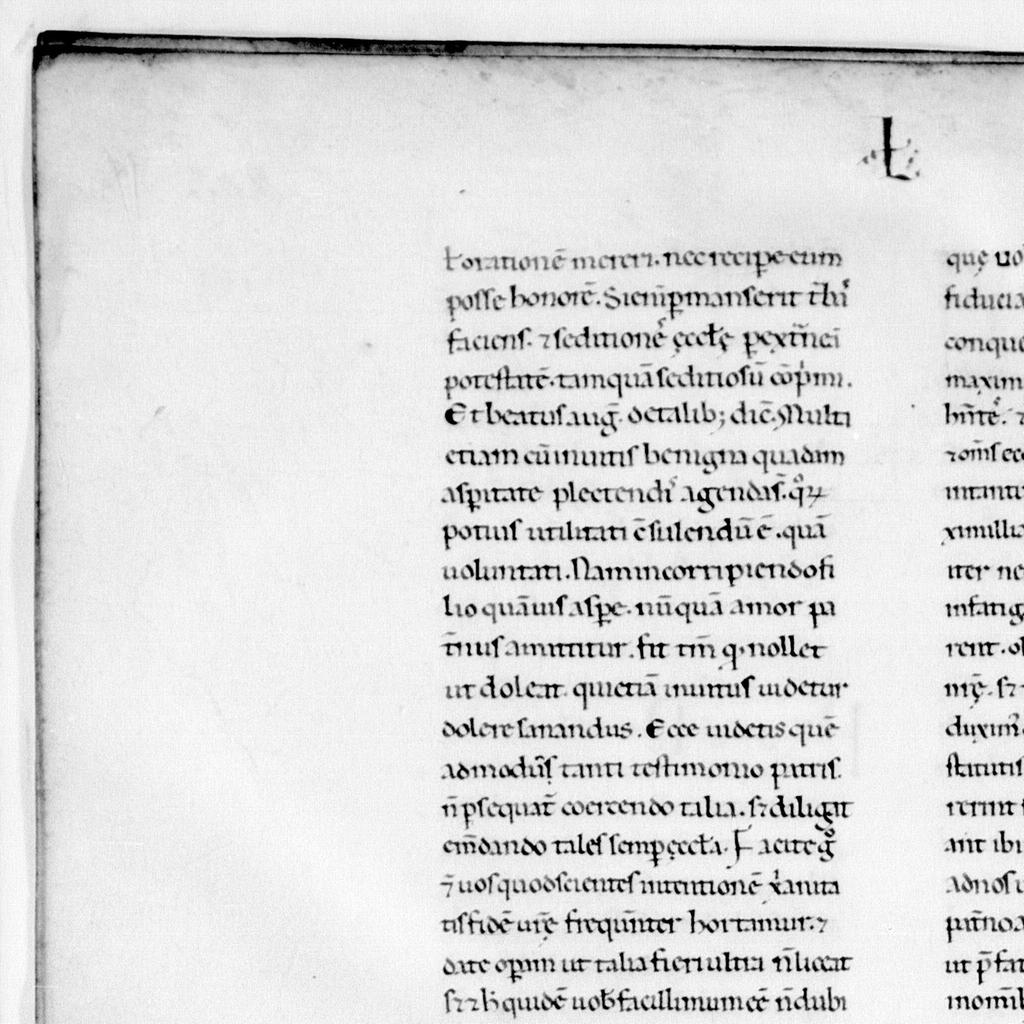 Ł
ł orationē mereri. nec recipe eum
posse honorē. Si enī ꝑmanserit
faciens. ⁊ seditionē ęccłę ꝑ extīnei
potestatē. tamquā seditiosū cōpmi.
Et beatus aug̅. de talib; dic̄. Multi
etiam cū inuitis benigna quadam
asꝑitate plectendi agendas̄. qͦꝝ
potius utilitati c̄sulendū ē. quā
uoluntati. Nam in corripiendo fi
lio quāuis asꝑe. nūquā amor pa
t̄nus amittitur. fit tm̄ q nollet
ut doleat. qui etiā inuitus uidetur
dolere sanandus. Ecce uidetis quē
admodū tanti testimonio patris.
n̄ ꝑsequat̄ coercendo talia. sꝫ diligit
em̄dando tales semꝑ ęccła. Facite gͦ
⁊ uos quod scientes intentionē xꝰ̄anita
tis fidē ur̄ę frequn̄ter hortamur. ⁊
date oꝑam ut talia fieri ultra n̄ liceat
sꝫ ⁊ h̄ quidē uob̄ facillimum eē n̄ dubi
quę uo
fiducia
conque
maxim
hn̄tē. ⁊
⁊ om̄s ecc
imitante
ximillia
iter ne
infatig
rent. ob
mę̄. sꝫ
duxim
statutis
rerint
ant ibi
ad nos u
pat̄no a
ut p̄fat
nomīb